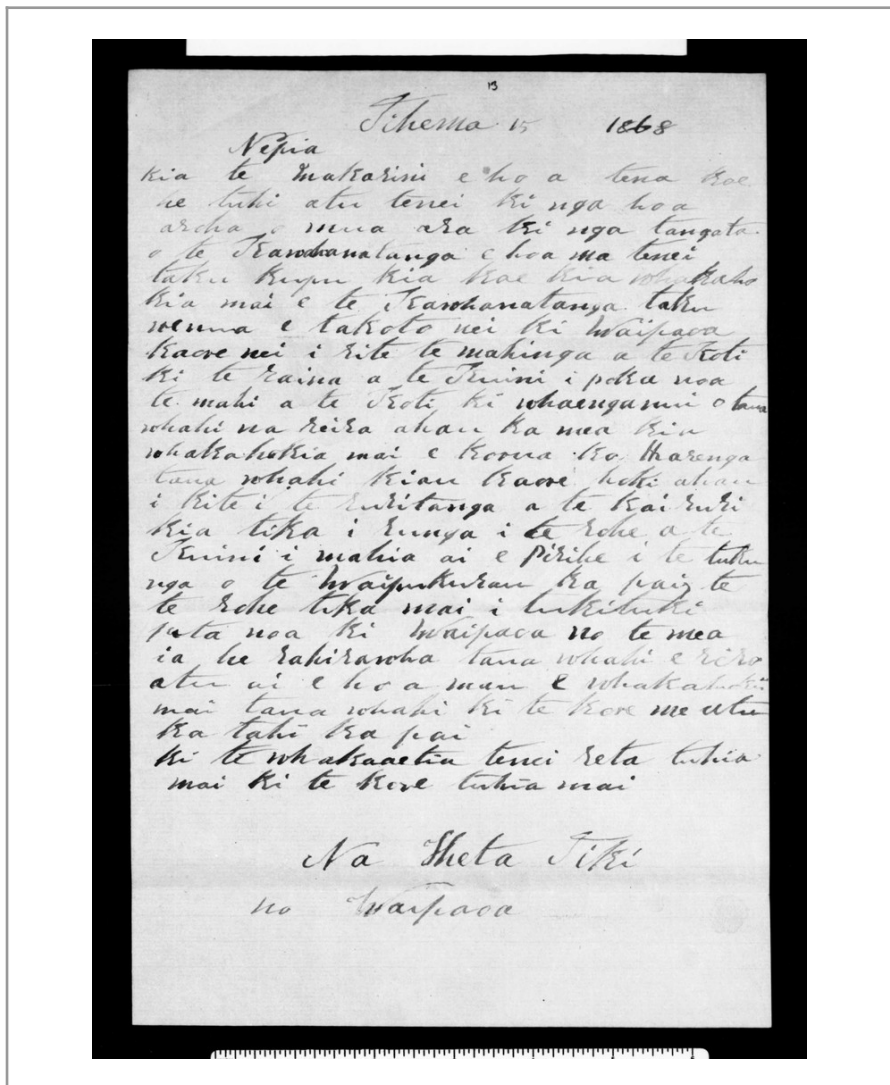 13
Tihema 15 1868
Nepia
kia te Makarini e ho a tena koe
he tuhi atu tenei ki nga hoa
aroha o mua ara ki nga tangata
o te Kawhanatanga e hoa ma tenei
taku kupu kia koe kia whakaho
kia mai e te Kawhanatanga taku
wenua e takoto nei ki Waipaoa
kaore nei i rite te mahinga a te Koti
ki te raina a te Kuini i poka noa
te mahi a te Koti ki whaenganui o tana
whahi na reira ahau ka mea kia
whakahokia mai e koroua ko Harenga
tana whahi kiau kaore hoki ahau
i kite i te ruritanga a te kai ruri
kia tika i runga i te rohe a te
Kuini i mahia ai e Pirihe i te tuku
nga o te Waipukurau ka pai te
te rohe tika mai i tukituki
puta noa ki Waipaoa no te mea
ia he rahirawha tana whahi e riro
atu ai e ho a mau e whakahokii
mai tana whahi ki te kore me utu
ka tahi ka pai
ki te whakaaetia tenei reta tuhia
mai ki te kore tuhia mai
Na Heta Tiki
no Waipaoa